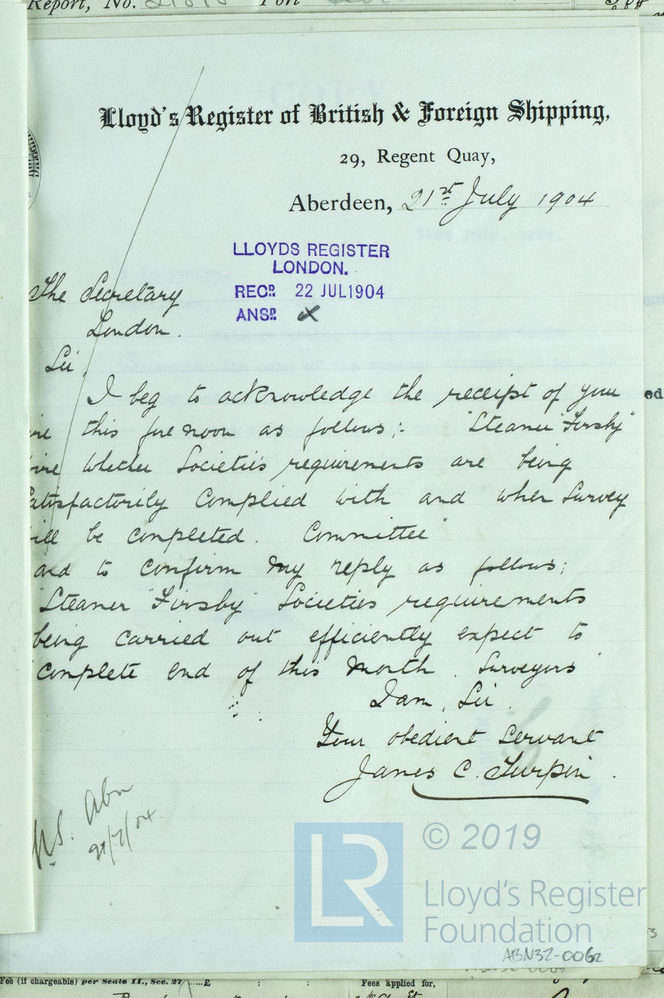 Report, No.
Port
Lloyd's Register of British & Foreign Shipping,
29, Regent Quay,
Aberdeen, 21st July 1904
LLOYDS REGISTER
LONDON.
RECD. 22 JUL 1904
ANSD.
The Secretary
London.
Sir,
I beg to acknowledge the receipt of your
this forenoon as follows:- "Steamer Firsby"
whether Societies requirements are being
satisfactorily complied with and when survey
will be completed. Committee"
and to confirm my reply as follows;
"Steamer "Firsby" Societies requirements
being carried out efficiently expect to
complete end of this month. Surveyors"
I am, Sir
Your obedient servant
James C. Turpin.
Abn
© 2019
LR
Lloyd's Register
Foundation
ABN32-0062
ed
Fee (if chargeable) per Scale II., Sec. 27 £ : :
Fees applied for,